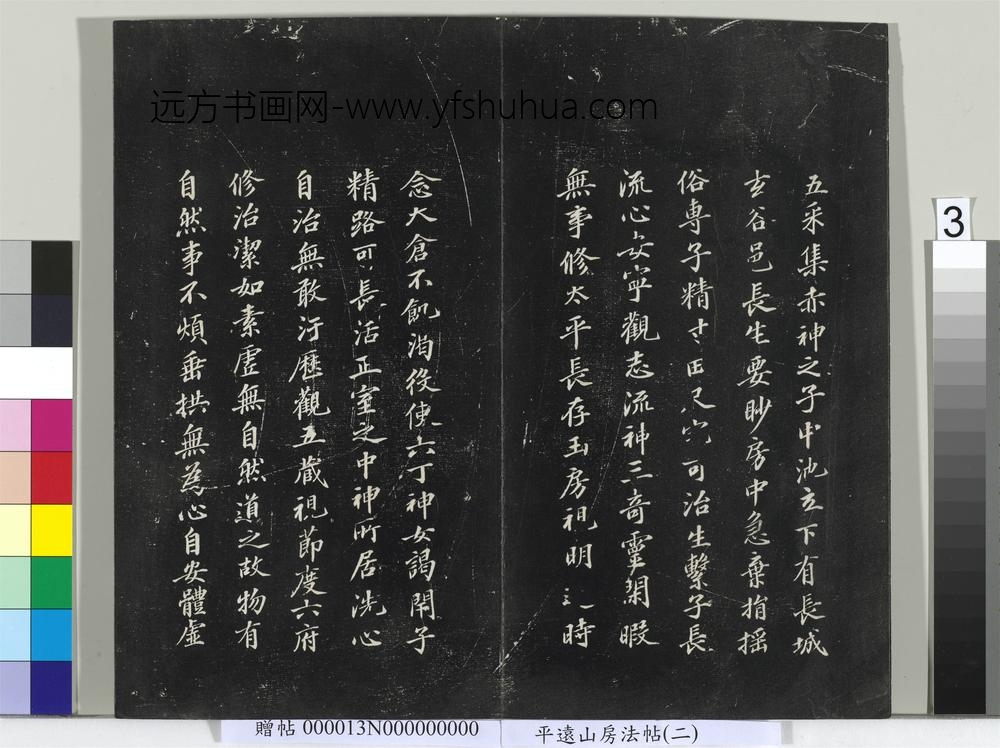 远方书画网-www.yfshuhua.com
五采集赤神之子中池立下有長城
玄谷邑長生要眇房中急棄捐搖
俗専子精寸田尺宅可治生繫子長
流心安寧觀志流神三奇靈閑暇
無事修太平長存玉房視明達時
念大倉不飢渴役使六丁神女謁閉子
精路可長活正室之中神所居洗心
自治無敢汙歷觀五藏視節度六府
修治潔如素虛無自然道之故物有
自然事不煩垂拱無為心自安體虛
3
贈帖 000013N000000000
平遠山房法帖(二)